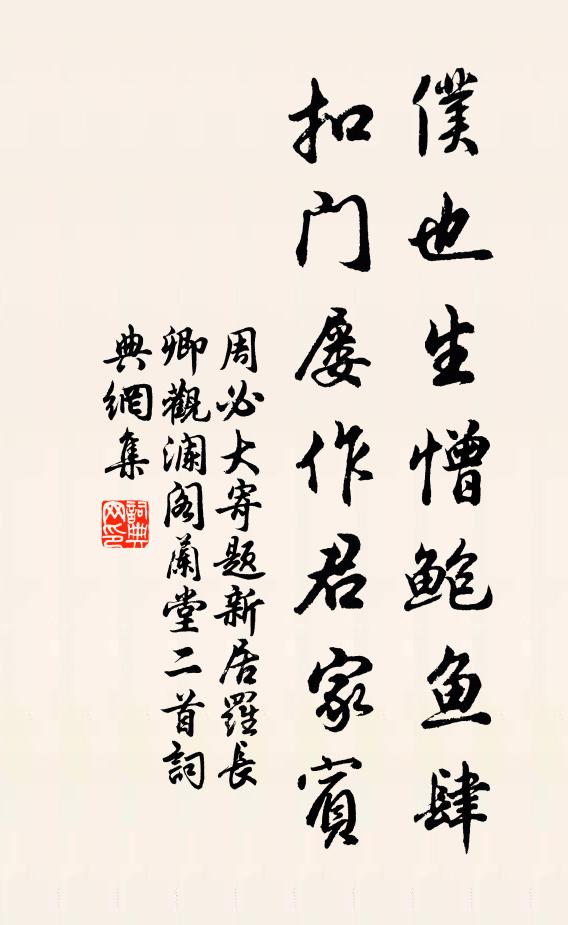 僕也生憎鮑魚肆
扣门屡作君家賓
周必大寄题新居羅長
卿觀澜阁蘭堂二首詞
典網集
詞典网印